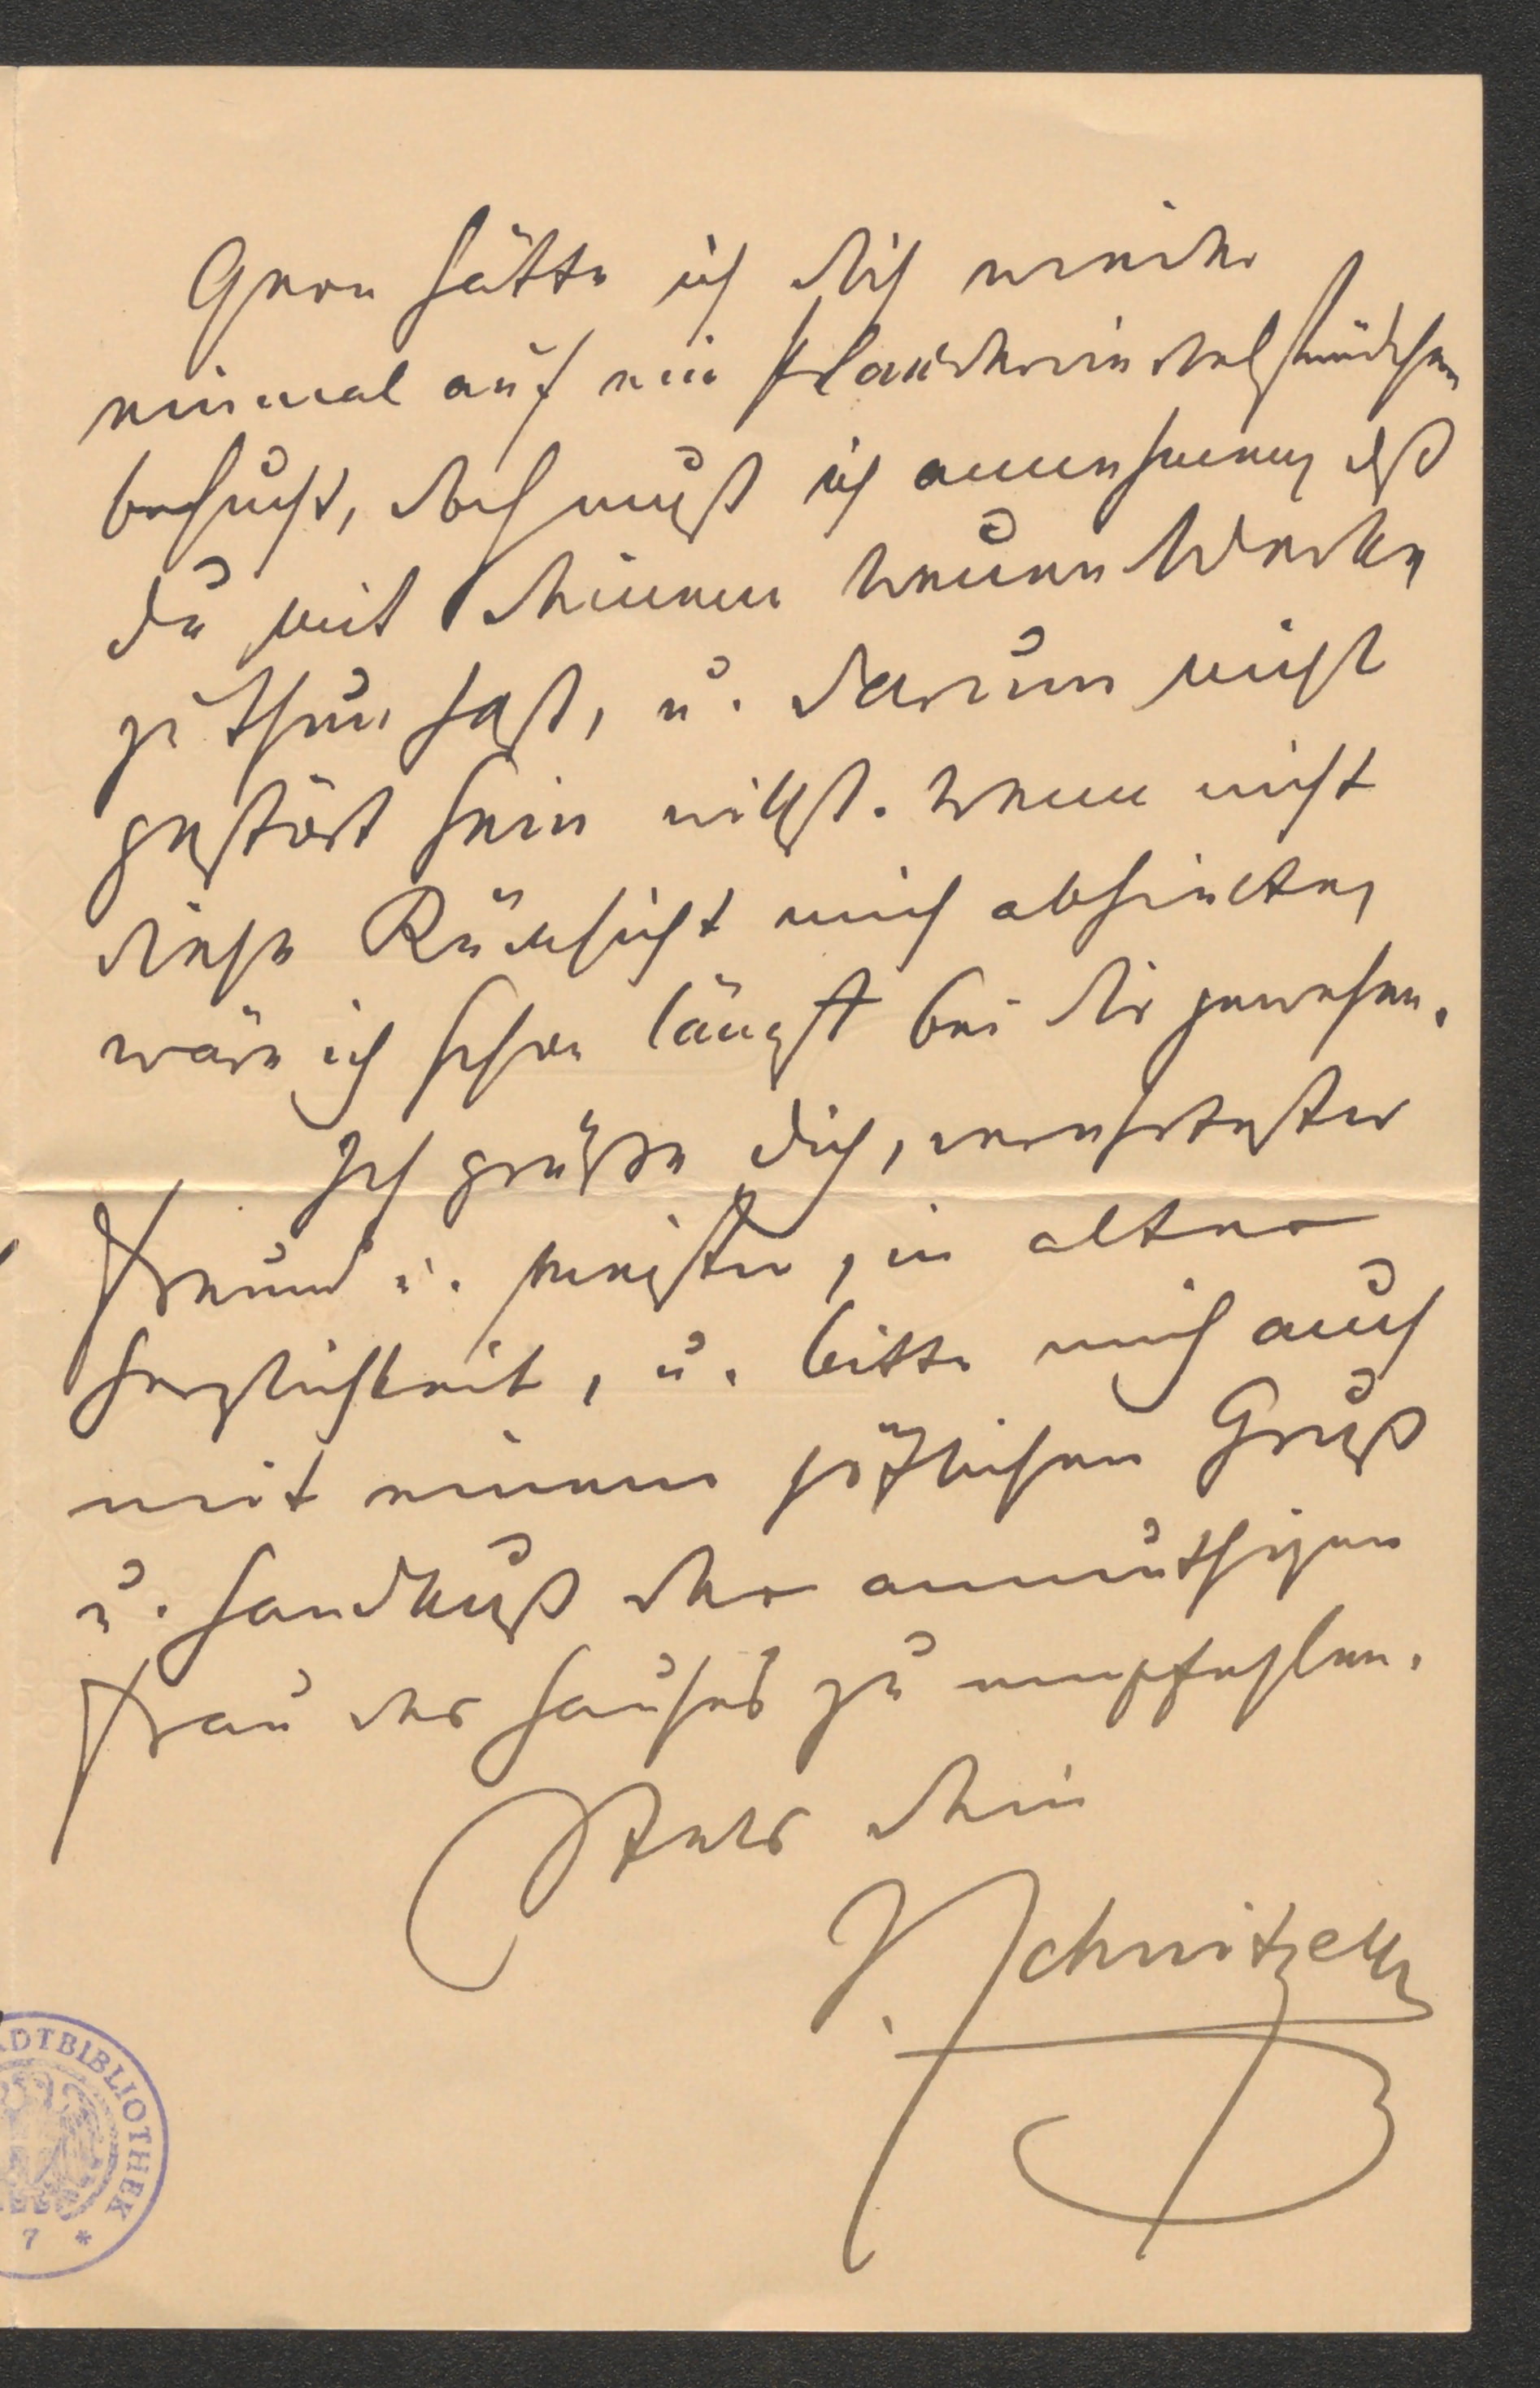 Gern hätte ich dich wieder
einmal auf ein Plauderviertelstündchen
besucht, doch muß ich annehmen, daß
du mit deinem neuen Werke
zu thun hast, u. darum nicht
gestört sein willst. Wenn nicht
diese Rücksicht mich abhielte,
wäre ich schon längst bei dir gewesen.
Ich grüße dich, verehrtester
Freund u. Meister, in alter
Herzlichkeit, u. bitte mich auch
mit einem höflichen Gruß
u. Handkuß der anmuthigen
Frau des Hauses zu empfehlen.
Stets dein
J. Schnitzer
ADTBIBLIOTHEK
7 *